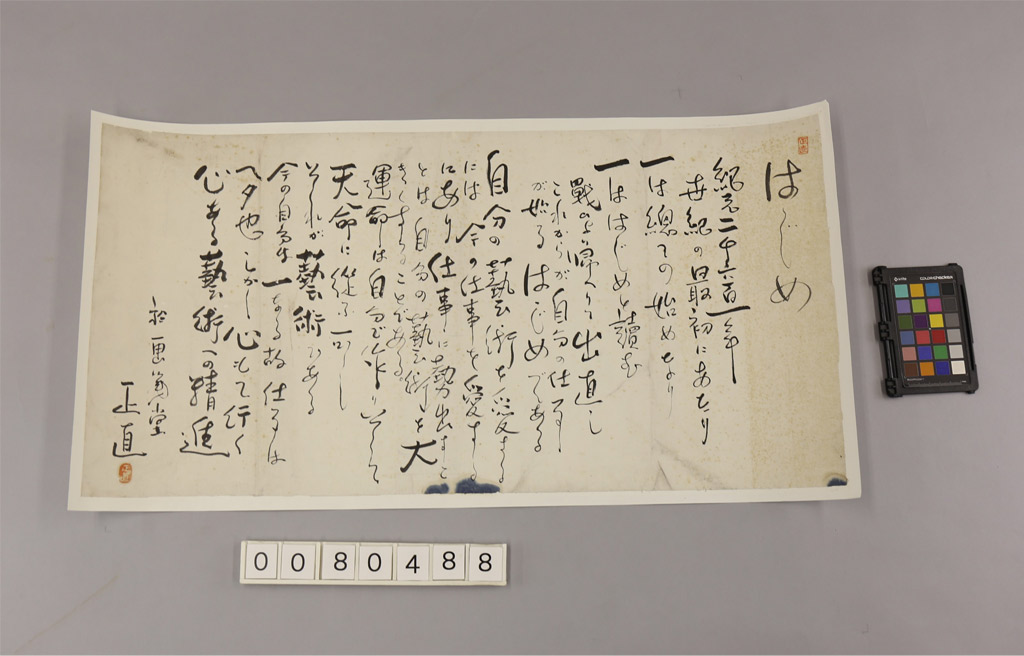 はじめ
紀元二千六百一年
世紀の最初にあたり
一は總ての始めなり
一ははじめと讀む
戰より帰へり出直し
これからが自分の仕事
が始る はじめである
自分の藝術を愛する
には 今の仕事を愛する
にあり 仕事に勢出すこ
とは 自分の藝術を大
きくすることである
運命は自分で作り
天命に從ふ可し
それが藝術である
今の自分は 一なる故 仕事は
ヘタ也 しかし心もて行く
心ある藝術へ精進
於畫筭堂
正直
0080488